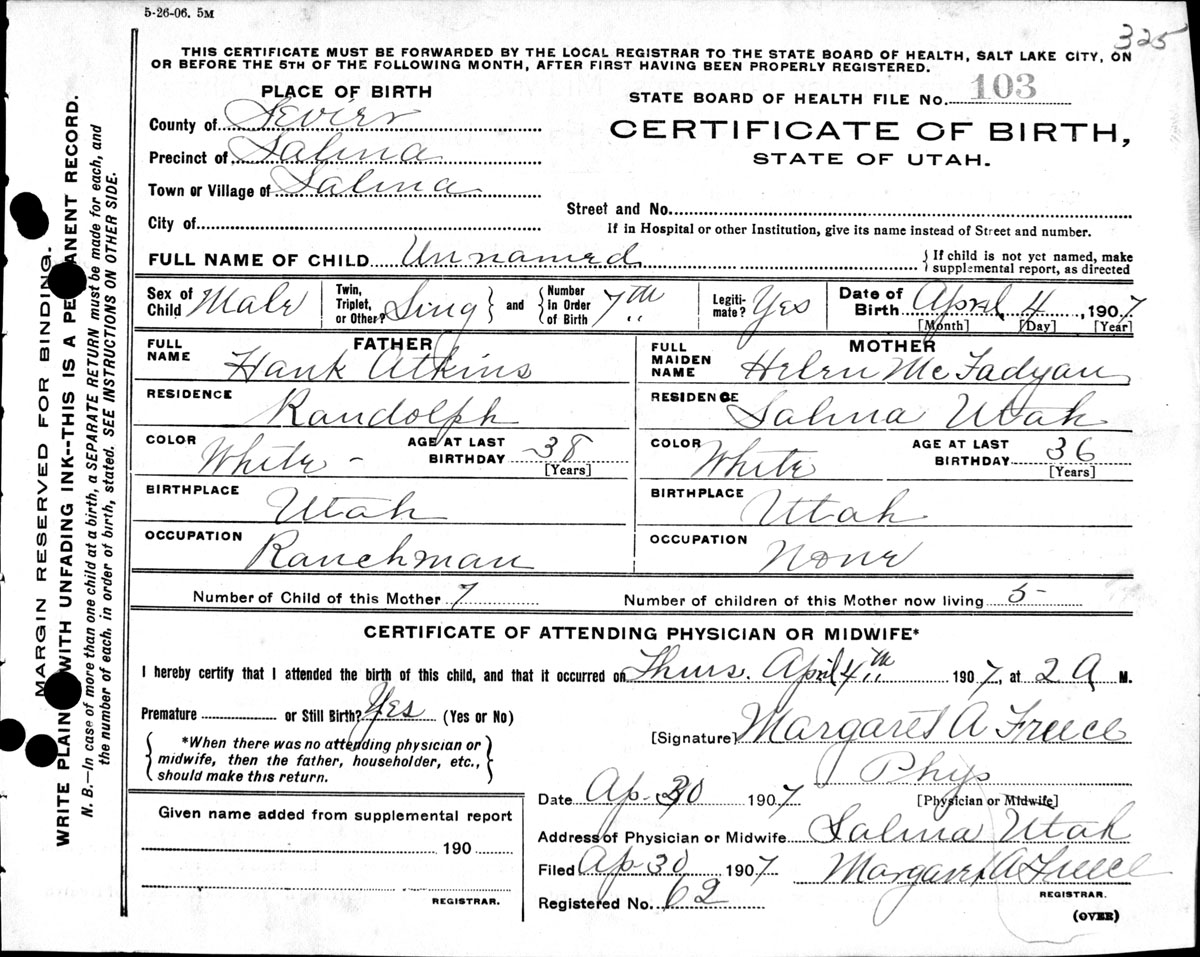 5-26-06. 5M
325
THIS CERTIFICATE MUST BE FORWARDED BY THE LOCAL REGISTRAR TO THE STATE BOARD OF HEALTH, SALT LAKE CITY, ON
OR BEFORE THE 5TH OF THE FOLLOWING MONTH, AFTER FIRST HAVING BEEN PROPERLY REGISTERED.
PLACE OF BIRTH
STATE BOARD OF HEALTH FILE No. 103
County of Sevier
CERTIFICATE OF BIRTH,
Precinct of Salina
STATE OF UTAH.
Town or Village of Salina
Street and No.
City of
If in Hospital or other Institution, give its name instead of Street and number.
FULL NAME OF CHILD Unnamed
{ If child is not yet named, make
supplemental report, as directed
Sex of Child Male
Twin, Triplet, or Other? Sing } and { Number in Order of Birth 7th
Legiti-mate? Yes
Date of Birth April 4, 1907
[Month] [Day] [Year]
FATHER
FULL NAME Hank Atkins
RESIDENCE Randolph
COLOR White -
AGE AT LAST BIRTHDAY 38
[Years]
BIRTHPLACE Utah
OCCUPATION Ranchman
MOTHER
FULL MAIDEN NAME Helen McFadyan
RESIDENCE Salina Utah
COLOR White
AGE AT LAST BIRTHDAY 36
[Years]
BIRTHPLACE Utah
OCCUPATION None
Number of Child of this Mother 7
Number of children of this Mother now living 5-
CERTIFICATE OF ATTENDING PHYSICIAN OR MIDWIFE*
I hereby certify that I attended the birth of this child, and that it occurred on Thurs. April 4th 1907, at 2 A M.
Premature or Still Birth? Yes (Yes or No)
{ *When there was no attending physician or
midwife, then the father, householder, etc.,
should make this return. }
[Signature] Margaret A Freece
Phys
[Physician or Midwife]
Date Ap 30 1907
Address of Physician or Midwife Salina Utah
Filed Ap 30 1907 Margaret A Freece
REGISTRAR.
Registered No. 62
(OVER)
Given name added from supplemental report
190
REGISTRAR.
MARGIN RESERVED FOR BINDING.
WRITE PLAIN WITH UNFADING INK--THIS IS A PE ANENT RECORD.
N. B.—In case of more than one child at a birth, a SEPARATE RETURN must be made for each, and
the number of each, in order of birth, stated. SEE INSTRUCTIONS ON OTHER SIDE.